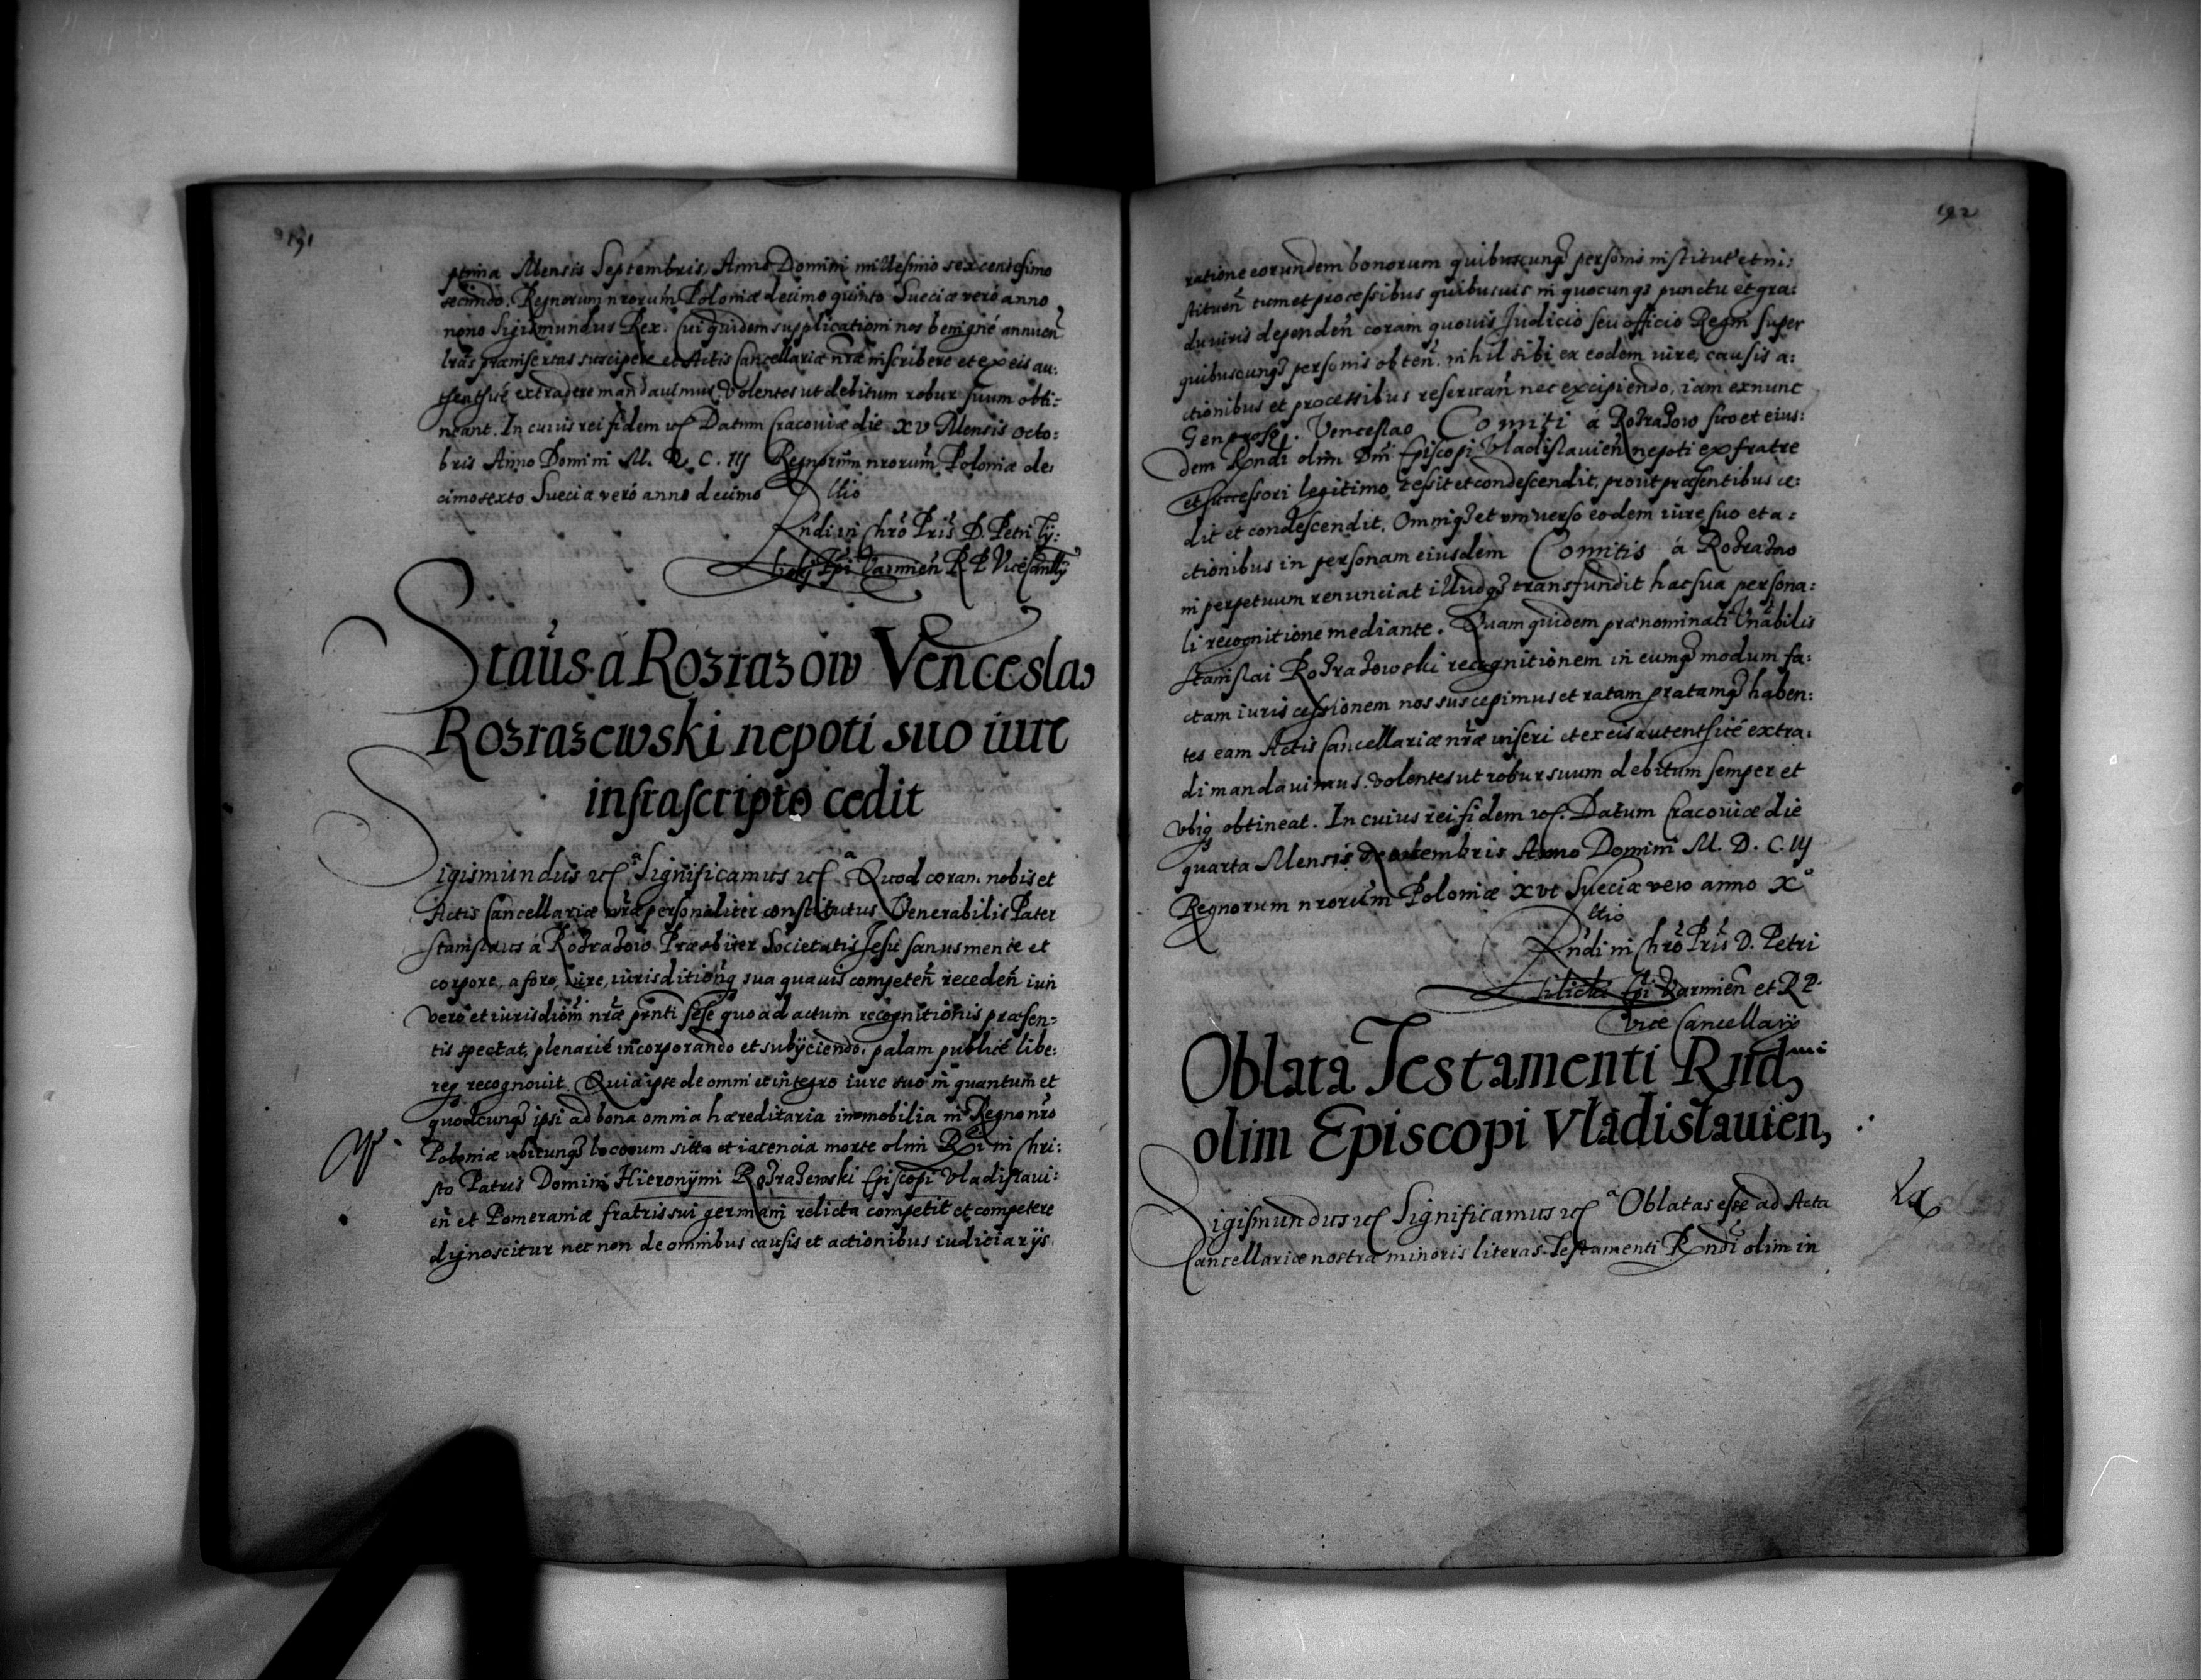 191
ptima Mensis Septembris, Anno Domini millesimo sexcentesimo
secundo. Regnorum nrorum Poloniæ decimo quinto Sueciæ veró anno
nono Sigismundus Rex. Cui quidem supplicationi nos benigné annuen̄
lras præinsertas suscipere et Actis Cancellariæ nræ inscribere et ex eis au:
thenthicé extradere mandauimus. Volentes ut debitum robur suum obti:
neant. In cuius rei fidem etc Datum Cracouiæ die XV Mensis Octo:
bris Anno Domini M. D. C. IIJ Regnorum nrorum Poloniæ de:
cimosexto Sueciæ veró anno decimo
Rltio
Rndi in Chro Pris D. Petri Ty:
licky Epi Varmien̄ R P Vicecanllij
Staus á Rozrazow Venceslao
Rozrazewski nepoti suo iure
infrascripto cedit
Sigismundus etc Significamus etc Quod coram nobis et
Actis Cancellariæ nræ personaliter constitutus Venerabilis Pater
Stanislaus á Rozrazow Præsbiter Societatis Jesu sanus mente et
corpore, a foro, iure, iurisditionq sua quauis competen̄ receden̄ iuri
veró et iurisdiom̄ nræ pnti sese quo ad actum recognitionis præsen:
tis spectat, plenarié incorporando et subijciendo, palam publicé libe:
req recognouit. Quia ipse de omni et integro iure suo in quantum et
quodcunq ipsi ad bona omnia hæreditaria immobilia in Regno nro
Poloniæ ubicunq locorum sita et iacencia morte olim Rdi in Chri:
sto Patris Domini Hieronÿmi Rozrazewski Episcopi Vladislaui:
en̄ et Pomeraniæ fratris sui germani relicta competit et competere
dignoscitur nec non de omnibus causis et actionibus iudiciarijs
192
ratione eorundem bonorum quibuscunq personis institut et in:
stituen̄ tum et processibus quibusuis in quocunq punctu et gra:
du iuris dependen̄ coram quouis Judicio seu officio Regni super
quibuscunq personis obten̄. nihil sibi ex eodem iure, causis a:
ctionibus et processibus reseruan̄ nec excipiendo, iam ex nunc
Generoso. Venceslao Comiti á Rozrazow suo et eius:
dem Rndi olim Dni Episcopi Vladislauien̄ nepoti ex fratre
et successori legitimo cessit et condescendit, prout præsentibus ce:
dit et condescendit. Omniq et vniuerso eodem iure suo et a:
ctionibus in personam eiusdem Comitis á Rozrazow
in perpetuum renunciat illudq transfundit hac sua persona:
li recognitione mediante. Quam quidem prænominati Vnabilis
Stanislai Rozrazowski recognitionem in eumq modum fa:
ctam iuris cessionem nos suscepimus et ratam gratamq haben:
tes eam Actis Cancellariæ nræ inseri et ex eis autenthicé extra:
di mandauimus. volentes ut robur suum debitum semper et
vbiq obtineat. In cuius rei fidem etc. Datum Cracouiæ die
quarta Mensis Anno Domini M. D. C. IIJ
Regnorum nrorum Poloniæ xvi Sueciæ vero anno X°
Rltio
Rndi in Chro Pris D. Petri
Tilicki Epi Varmien̄ et R P.
Vice Cancellarij
Oblata Testamenti Rnd,mi
olim Episcopi Vladislauien,
Sigismundus etc Significamus etc Oblatas esse ad Acta
Cancellariæ nostræ minoris literas Testamenti Rndi olim in